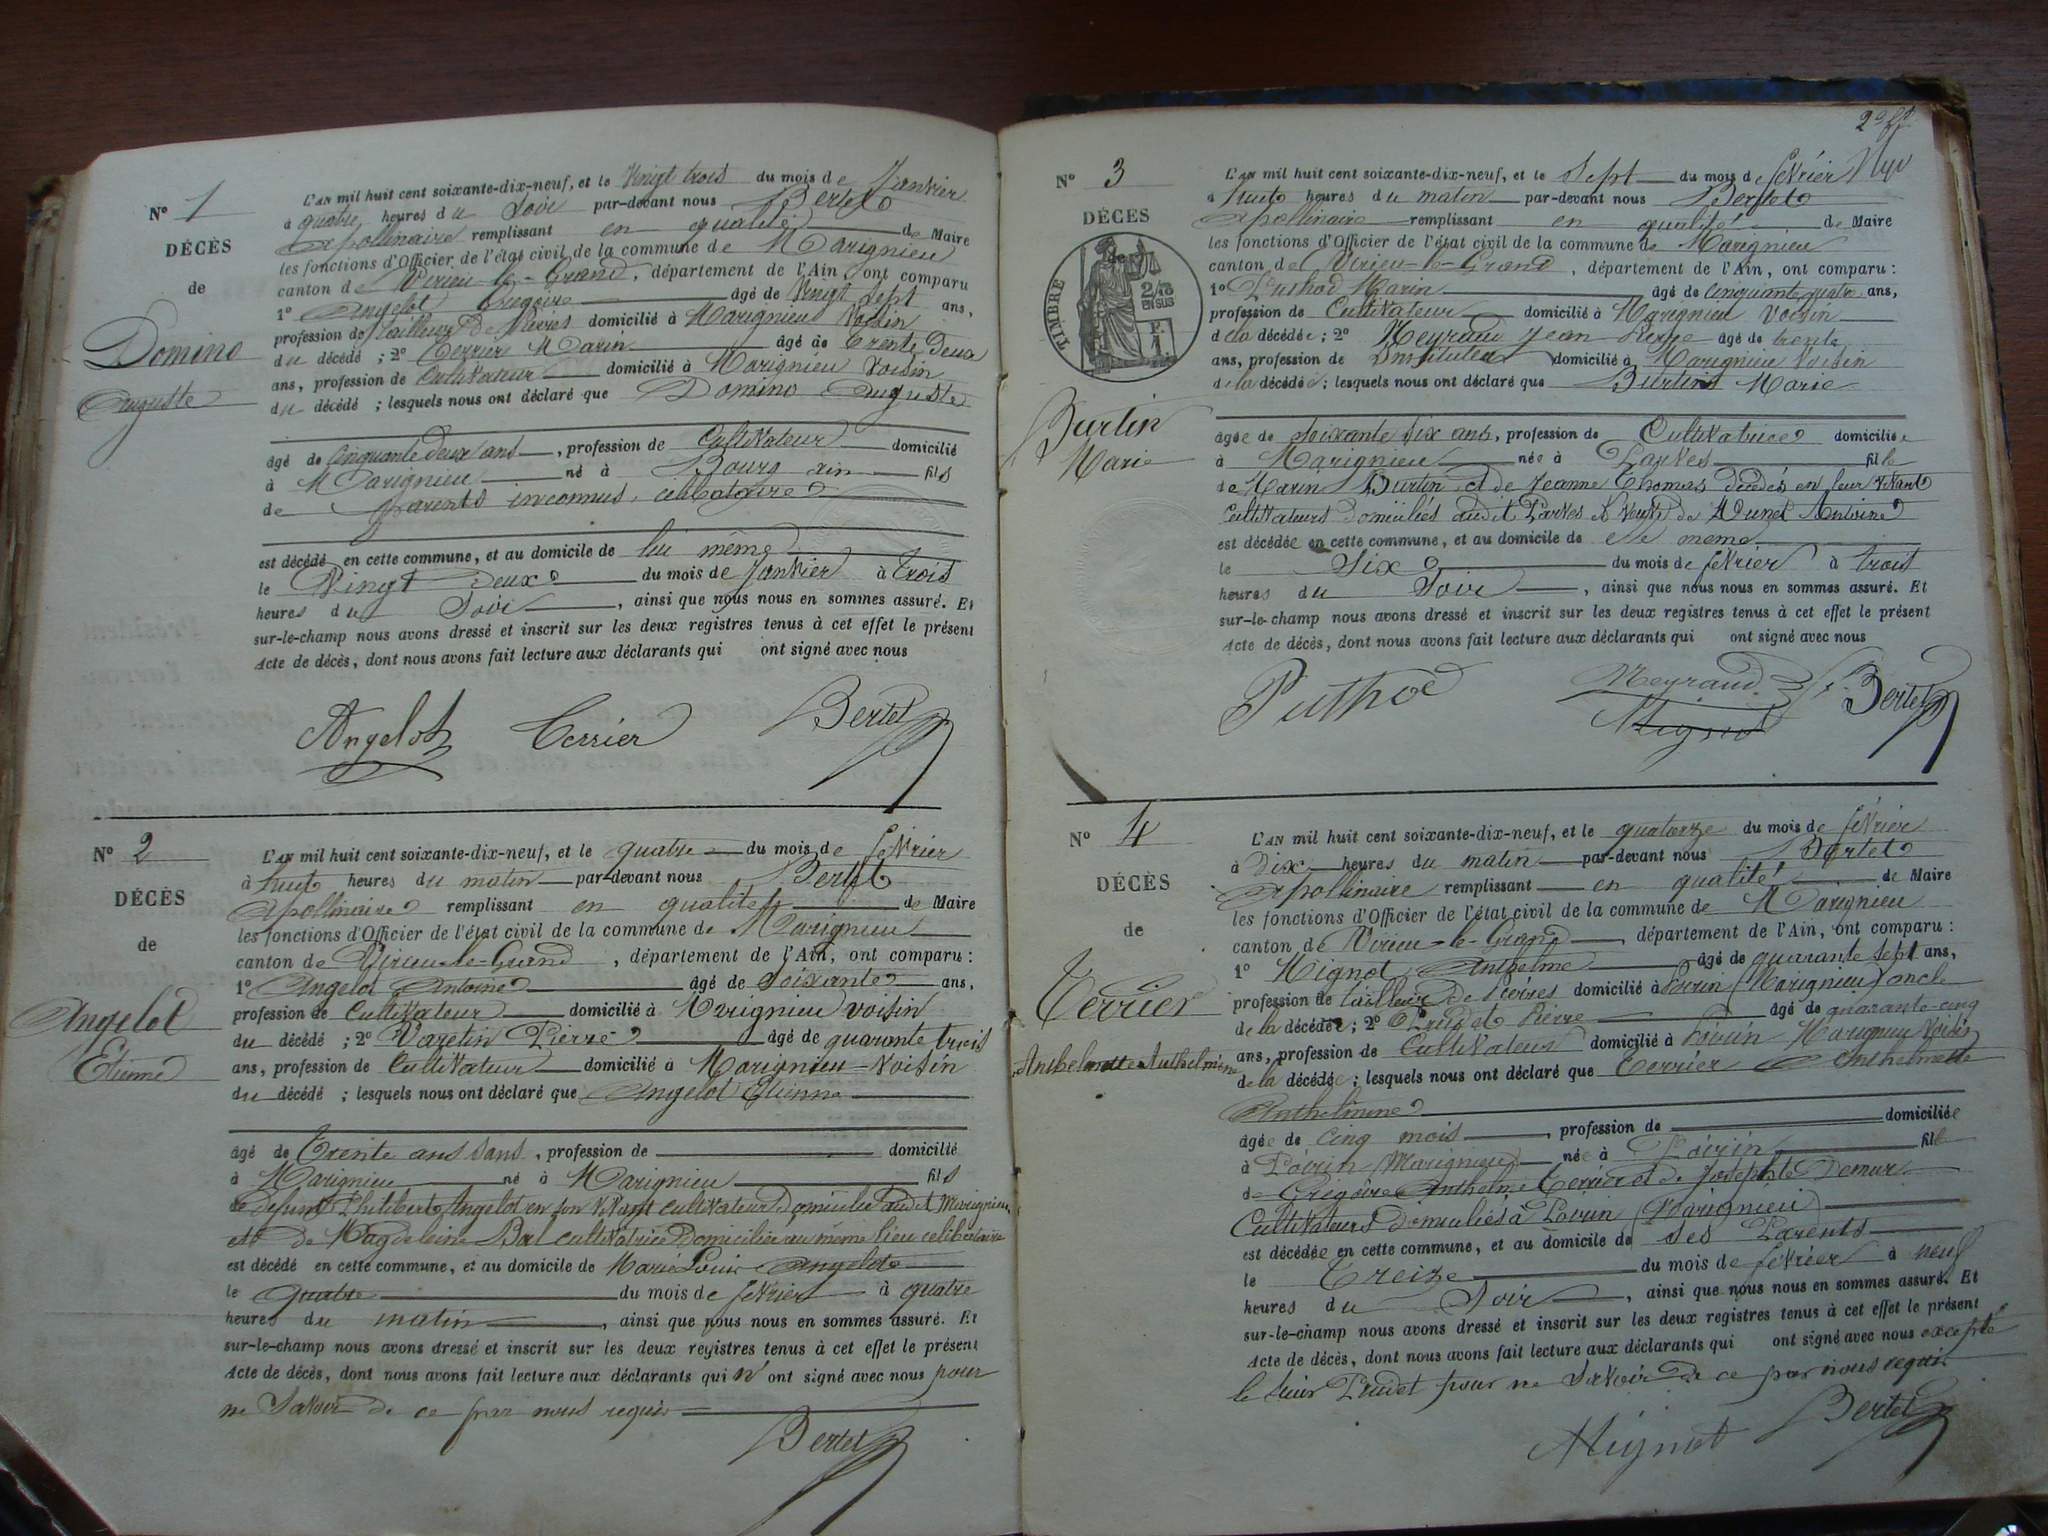 N° 1
DÉCÈS
de
Domino
Auguste
L'AN mil huit cent soixante-dix-neuf, et le Vingt trois du mois de Janvier
à quatre heures du Soir par-devant nous Bertet
Apollinaire remplissant en qualité de Maire
les fonctions d'Officier de l'état civil de la commune de Marignieu
canton de Virieu-le-Grand, département de l'Ain ont comparu
1° Angelot Grégoire âgé de Vingt Sept ans,
profession de tailleur de Pierres domicilié à Marignieu Voisin
du décédé ; 2° Terrier Marin âgé de trente Deux
ans, profession de Cultivateur domicilié à Marignieu Voisin
du décédé ; lesquels nous ont déclaré que Domino Auguste
âgé de Cinquante deux ans, profession de Cultivateur domicilié
à Marignieu né à Bourg Ain fils
de parents inconnus, célibataire
est décédé en cette commune, et au domicile de lui même
le Vingt Deux du mois de Janvier à trois
heures du Soir, ainsi que nous nous en sommes assuré. Et
sur-le-champ nous avons dressé et inscrit sur les deux registres tenus à cet effet le présent
Acte de décès, dont nous avons fait lecture aux déclarants qui ont signé avec nous
Angelot Terrier Bertet
N° 2
DÉCÈS
de
Angelot
Etienne
L'AN mil huit cent soixante-dix-neuf, et le quatre du mois de février
à huit heures du matin par-devant nous Bertet
Apollinaire remplissant en qualité de Maire
les fonctions d'Officier de l'état civil de la commune de Marignieu
canton de Virieu-le-Grand, département de l'Ain, ont comparu :
1° Angelot Antoine âgé de Soixante ans,
profession de Cultivateur domicilié à Marignieu voisin
du décédé ; 2° Varetin Pierre âgé de quarante trois
ans, profession de Cultivateur domicilié à Marignieu - Voisin
du décédé ; lesquels nous ont déclaré que Angelot Etienne
âgé de Trente ans sans, profession de domicilié
à Marignieu né à Marignieu fils
de défunt Philibert Angelot en son vivant cultivateur domicilié audit Marignieu
et de Magdeleine Bal cultivatrice Domiciliée au même lieu célibataire
est décédé en cette commune, et au domicile de Marie Louise Angelot
le quatre du mois de février à quatre
heures du matin, ainsi que nous nous en sommes assuré. Et
sur-le-champ nous avons dressé et inscrit sur les deux registres tenus à cet effet le présent
Acte de décès, dont nous avons fait lecture aux déclarants qui n'ont signé avec nous pour
ne Savoir de ce par nous requis
Bertet
N° 3
DÉCÈS
de
TIMBRE
2/10
EN SUS
Burtin
Marie
L'AN mil huit cent soixante-dix-neuf, et le Sept du mois de février
à huit heures du matin par-devant nous Bertet
Apollinaire remplissant en qualité de Maire
les fonctions d'Officier de l'état civil de la commune de Marignieu
canton de Virieu-le-Grand, département de l'Ain, ont comparu :
1° Puthod Marin âgé de Cinquante quatre ans,
profession de Cultivateur domicilié à Marignieu voisin
de la décédée ; 2° Meyraud Jean Pierre âgé de trente
ans, profession de Instituteur domicilié à Marignieu Voisin
de la décédée ; lesquels nous ont déclaré que Burtin Marie
âgée de Soixante Six ans, profession de Cultivatrice domiciliée
à Marignieu née à Parves fille
de Marin Burtin et de Jeanne Thomas décédés en leur vivant
Cultivateurs Domiciliés audit Parves et Veuve de Antoine
est décédée en cette commune, et au domicile de elle même
le Six du mois de février à trois
heures du Soir, ainsi que nous nous en sommes assuré. Et
sur-le-champ nous avons dressé et inscrit sur les deux registres tenus à cet effet le présent
Acte de décès, dont nous avons fait lecture aux déclarants qui ont signé avec nous
Puthod Meyraud Bertet
Mignot
N° 4
DÉCÈS
de
Terrier
Anthelmette Anthelmine
L'AN mil huit cent soixante-dix-neuf, et le quatorze du mois de février
à Dix heures du matin par-devant nous Bertet
Apollinaire remplissant en qualité de Maire
les fonctions d'Officier de l'état civil de la commune de Marignieu
canton de Virieu-le-Grand, département de l'Ain, ont comparu :
1° Mignot Anthelme âgé de quarante Sept ans,
profession de tailleur de Pierres domicilié à Poirin (Marignieu) oncle
de la décédée ; 2° Prudet Pierre âgé de quarante-cinq
ans, profession de Cultivateur domicilié à Poirin Marignieu Voisin
de la décédée ; lesquels nous ont déclaré que Terrier Anthelmette
Anthelmine domiciliée
âgée de Cinq mois, profession de
à Poirin (Marignieu) née à Poirin fille
de Grégoire Anthelme Terrier et de Josephte Demur
Cultivateurs domiciliés à Poirin (Marignieu)
est décédée en cette commune, et au domicile de ses Parents
le Treize du mois de février à neuf
heures du Soir, ainsi que nous nous en sommes assuré. Et
sur-le-champ nous avons dressé et inscrit sur les deux registres tenus à cet effet le présent
Acte de décès, dont nous avons fait lecture aux déclarants qui ont signé avec nous excepté
le Sieur Prudet pour ne Savoir de ce par nous requis.
Mignot Bertet